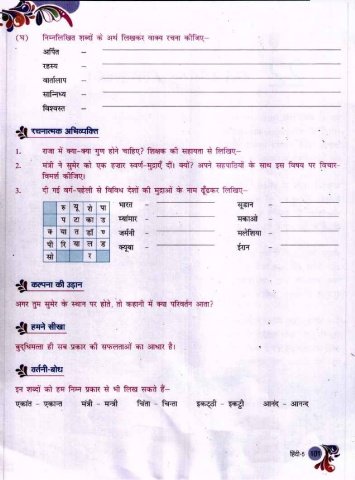 (घ) निम्नलिखित शब्दों के अर्थ लिखकर वाक्य रचना कीजिए–
अर्पित –
रहस्य –
वार्तालाप –
सान्निध्य –
विश्वस्त –
रचनात्मक अभिव्यक्ति
1. राजा में क्या-क्या गुण होने चाहिए? शिक्षक की सहायता से लिखिए–
2. मंत्री ने सुमेर को एक हज़ार स्वर्ण-मुद्राएँ दीं। क्यों? अपने सहपाठियों के साथ इस विषय पर विचार-
विमर्श कीजिए।
3. दी गई वर्ग-पहेली से विविध देशों की मुद्राओं के नाम ढूँढ़कर लिखिए–
रु यू रो पा
प टा का उ
क्या त डॉ ण
पी रि या ल ड
सो र
भारत – सूडान –
म्यांमार – मकाओ –
जर्मनी – मलेशिया –
क्यूबा – ईरान –
कल्पना की उड़ान
अगर तुम सुमेर के स्थान पर होते, तो कहानी में क्या परिवर्तन आता?
हमने सीखा
बुद्धिमत्ता ही सब प्रकार की सफलताओं का आधार है।
वर्तनी-बोध
इन शब्दों को हम निम्न प्रकार से भी लिख सकते हैं–
एकांत – एकान्त मंत्री – मन्त्री चिंता – चिन्ता इकट्ठी – इकट्ठी आनंद – आनन्द
हिंदी-5 101